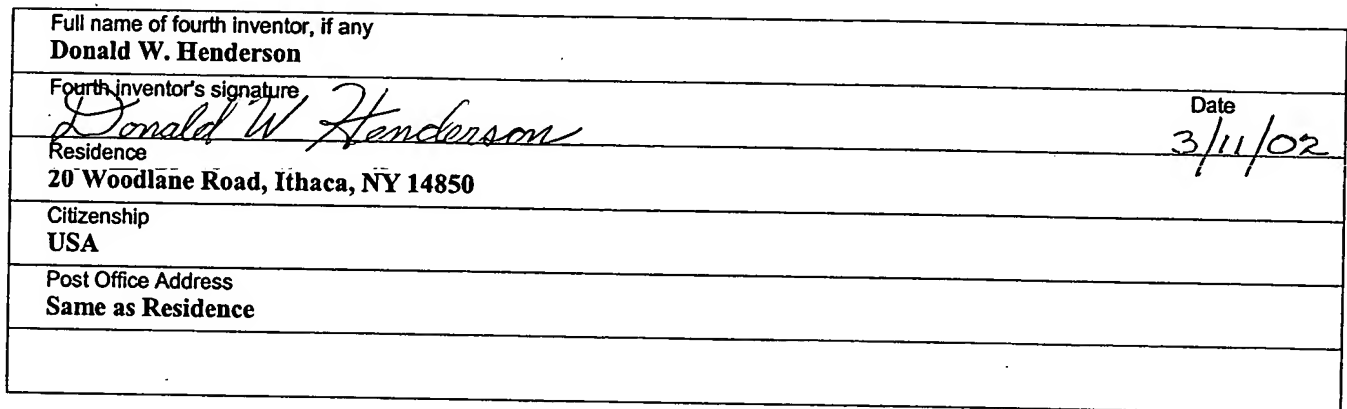 Full name of fourth inventor, if any
Donald W. Henderson
Fourth inventor's signature
Donald W Henderson
Date
3/11/02
Residence
20 Woodlane Road, Ithaca, NY 14850
Citizenship
USA
Post Office Address
Same as Residence